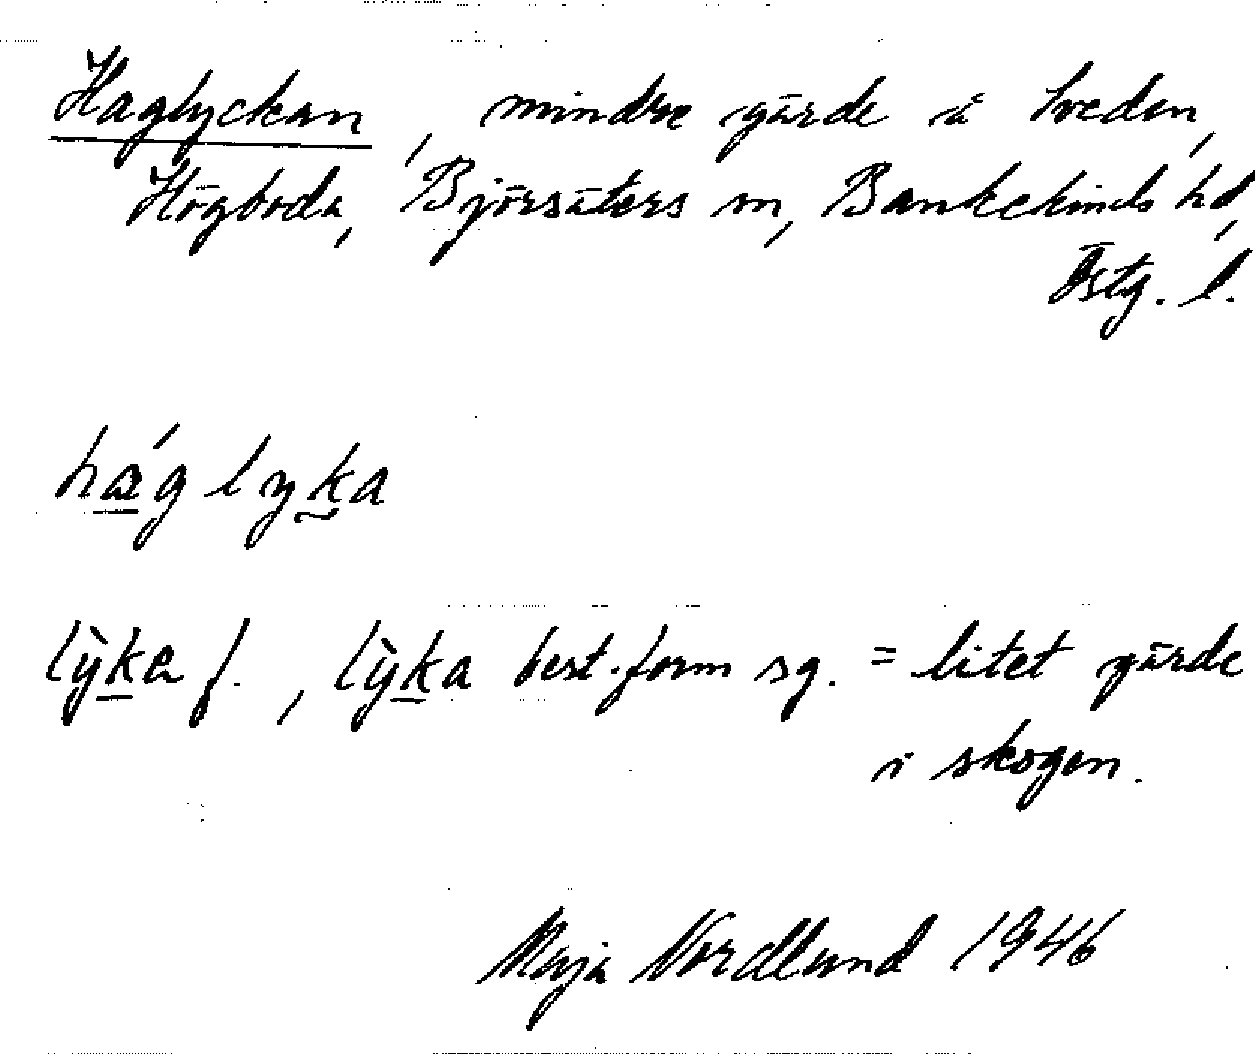 Haglyckan, mindre gärde i Sveden,
Högboda, Björsäters sn, Bankekinds hd,
Östg. l.
háglyka
lỳka f., lỳka best. form sg. = litet gärde
i skogen.
Maja Nordlund 1946